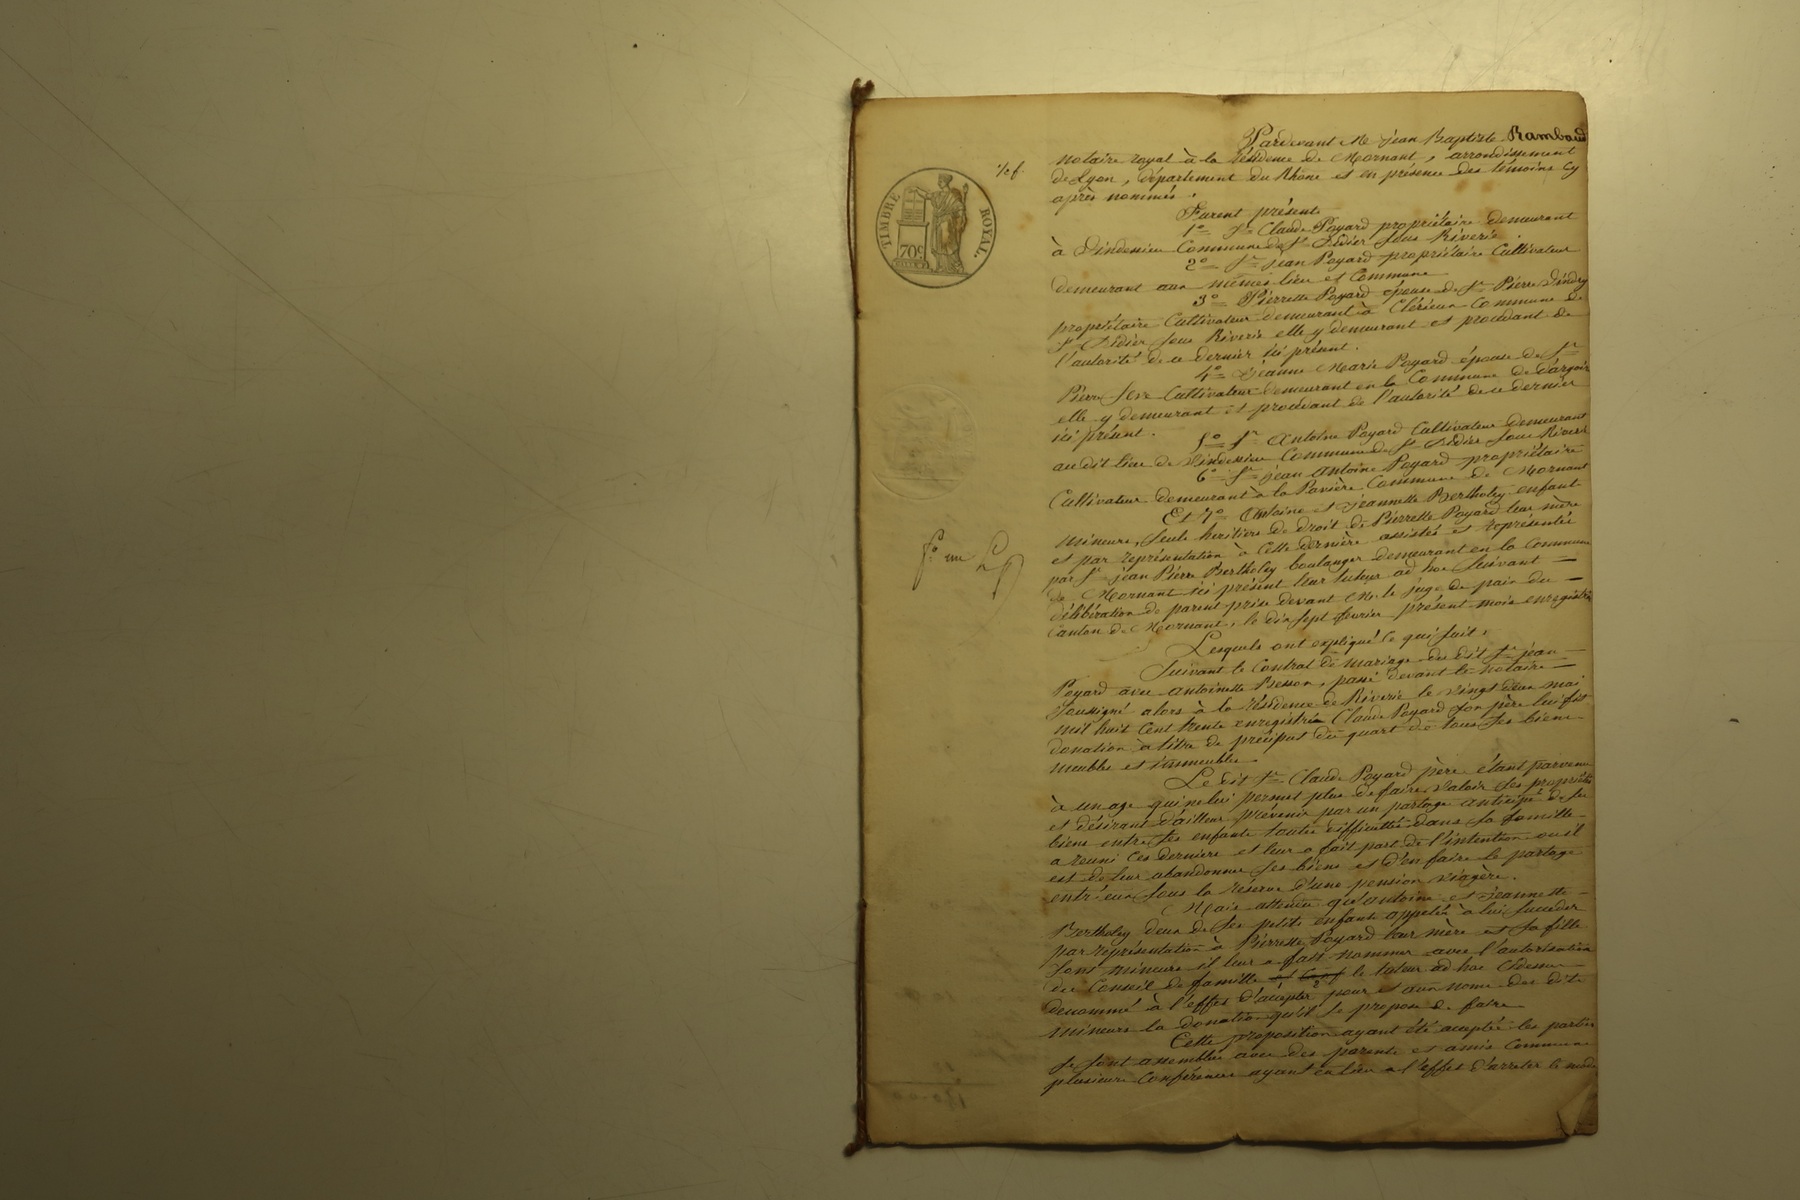 Pardevant Me jean Baptiste Rambaud
notaire royal à la résidence de Mornant, arrondissement
de Lyon, département du Rhône et en présence des témoins cy
après nommés :
Furent présents
1o Sr Claude Poyard propriétaire demeurant
à Dindenieu Commune de St Didier sous Riverie
2o Sr jean Poyard propriétaire Cultivateur
demeurant aux mêmes lieu et Commune
3o Pierrette Poyard épouse de Sr Pierre
propriétaire Cultivateur demeurant à Commune de
St Didier sous Riverie elle y demeurant et procédant de
l'autorité de ce dernier ici présent.
4o Jeanne Marie Poyard épouse de Sr
Pierre Cultivateur demeurant en la Commune de
elle y demeurant et procédant de l'autorité de ce dernier
ici présent.
5o Sr Antoine Poyard Cultivateur demeurant
audit lieu de Dindenieu Commune de St Didier sous Riverie
6o Sr jean Antoine Poyard propriétaire
Cultivateur demeurant à la Commune de Mornant
Et 7o Antoine et jeannette Bertholey enfants
mineurs, seuls héritiers de droit de Pierrette Poyard leur mère
et par représentation à cette dernière assistés et représentés
par Sr jean Pierre Bertholey boulanger demeurant en la Commune
de Mornant ici présent leur tuteur ad hoc suivant
délibération de parents prise devant Mr le juge de paix du
Canton de Mornant, le dix sept février présent mois enregistré
Lesquels ont expliqué ce qui suit :
Suivant le Contrat de mariage du dit Sr jean
Poyard avec antoinette Besson, passé devant le notaire
soussigné alors à la résidence de Riverie le vingt deux mai
mil huit cent trente enregistré Claude Poyard son père lui fit
donation à titre de préciput du quart de tous ses biens
meubles et immeubles.
Le dit Sr Claude Poyard père étant parvenu
à un age qui ne lui permet plus de faire valoir ses propriétés
et désirant d'ailleurs prévenir par un partage anticipé de ses
biens entre ses enfants toutes difficultés dans sa famille
a réuni ces derniers et leur a fait part de l'intention où il
est de leur abandonner ses biens et d'en faire le partage
entr'eux sous la réserve d'une pension viagère.
Mais attendu qu'antoine et jeannette
Bertholey deux de ses petits enfants appelés à lui succéder
par représentation à Pierrette Poyard leur mère et sa fille
sont mineurs il leur a fait nommer avec l'autorisation
du Conseil de famille le tuteur ad hoc cidessus
dénommé à l'effet d'accepter pour et aux noms des dits
mineurs la donation qu'il se propose de faire
Cette proposition ayant été acceptée les parties
se sont assemblées avec des parents et amis communs
plusieurs Conférences ayant eu lieu à l'effet d'arreter le mode
TIMBRE ROYAL.
70c
fo un